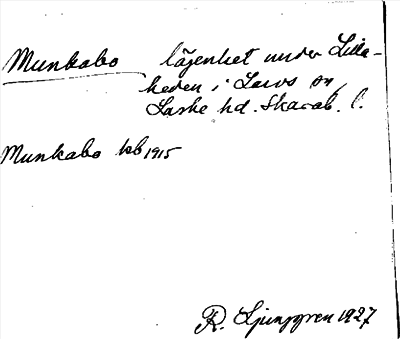 Munkabo lägenhet under Lilla-
heden i Lavs sn,
Laske hd. Skarab. l.
Munkabo kb 1915
R. Ljunggren 1927